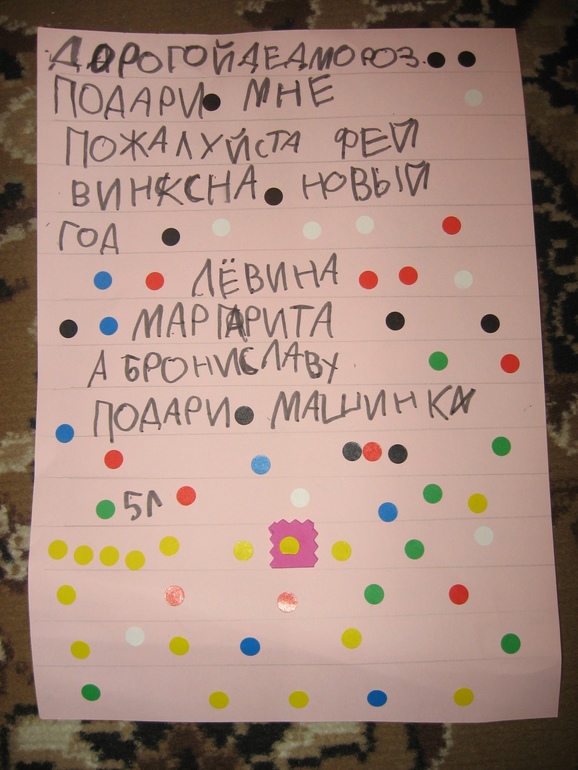 ДОРОГОЙДЕДМОРОЗ.
ПОДАРИ МНЕ
ПОЖАЛУЙСТА ФЕЙ
ВИНКСНА НОВЫЙ
ГОД
ЛЁВИНА
МАРГАРИТА
А БРОНИСЛАВУ
ПОДАРИ МАШИНКА
5Л